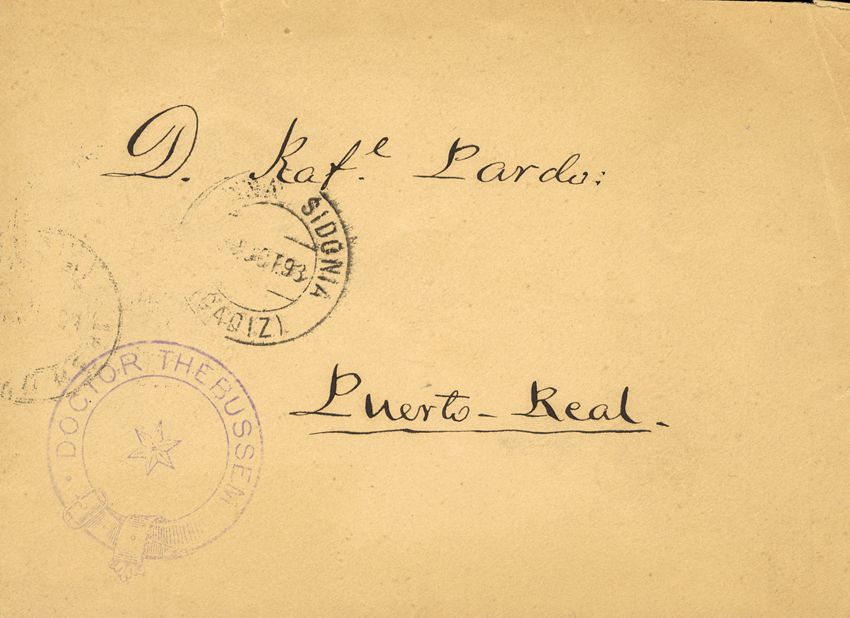 D. Raf.e Pardo:
SIDONIA
OCT.93
(CADIZ)
Puerto-Real.
DOCTOR THEBUSSEM